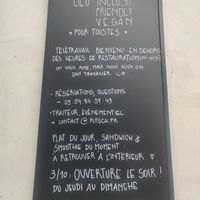 LIEU INCLUSIF
FRIENDLY
VEGAN
POUR TOUSTES
TÉLÉTRAVAIL BIENVENU EN DEHORS
DES HEURES DE RESTAURATION
ON VOUS AIME, MAIS NOUS AUSSI ON
DOIT TRAVAILLER
- RÉSERVATIONS, QUESTIONS
→ 09 54 54 39 49
- TRAITEUR, ÉVÉNEMENTIEL
→ CONTACT@PUTSCH.FR
PLAT DU JOUR, SANDWICH &
SMOOTHIE DU MOMENT
À RETROUVER À L'INTÉRIEUR
3/10: OUVERTURE LE SOIR!
DU JEUDI AU DIMANCHE